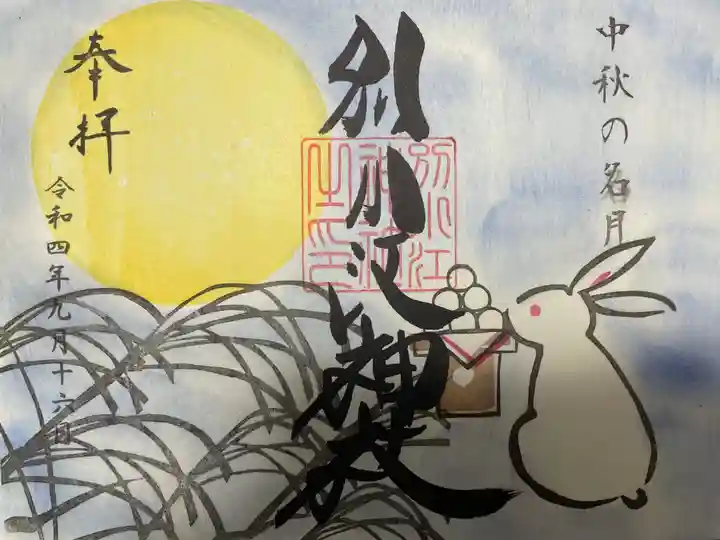 中秋の名月
別小江神社
別小江
神社
之印
奉拝
令和四年九月十六日